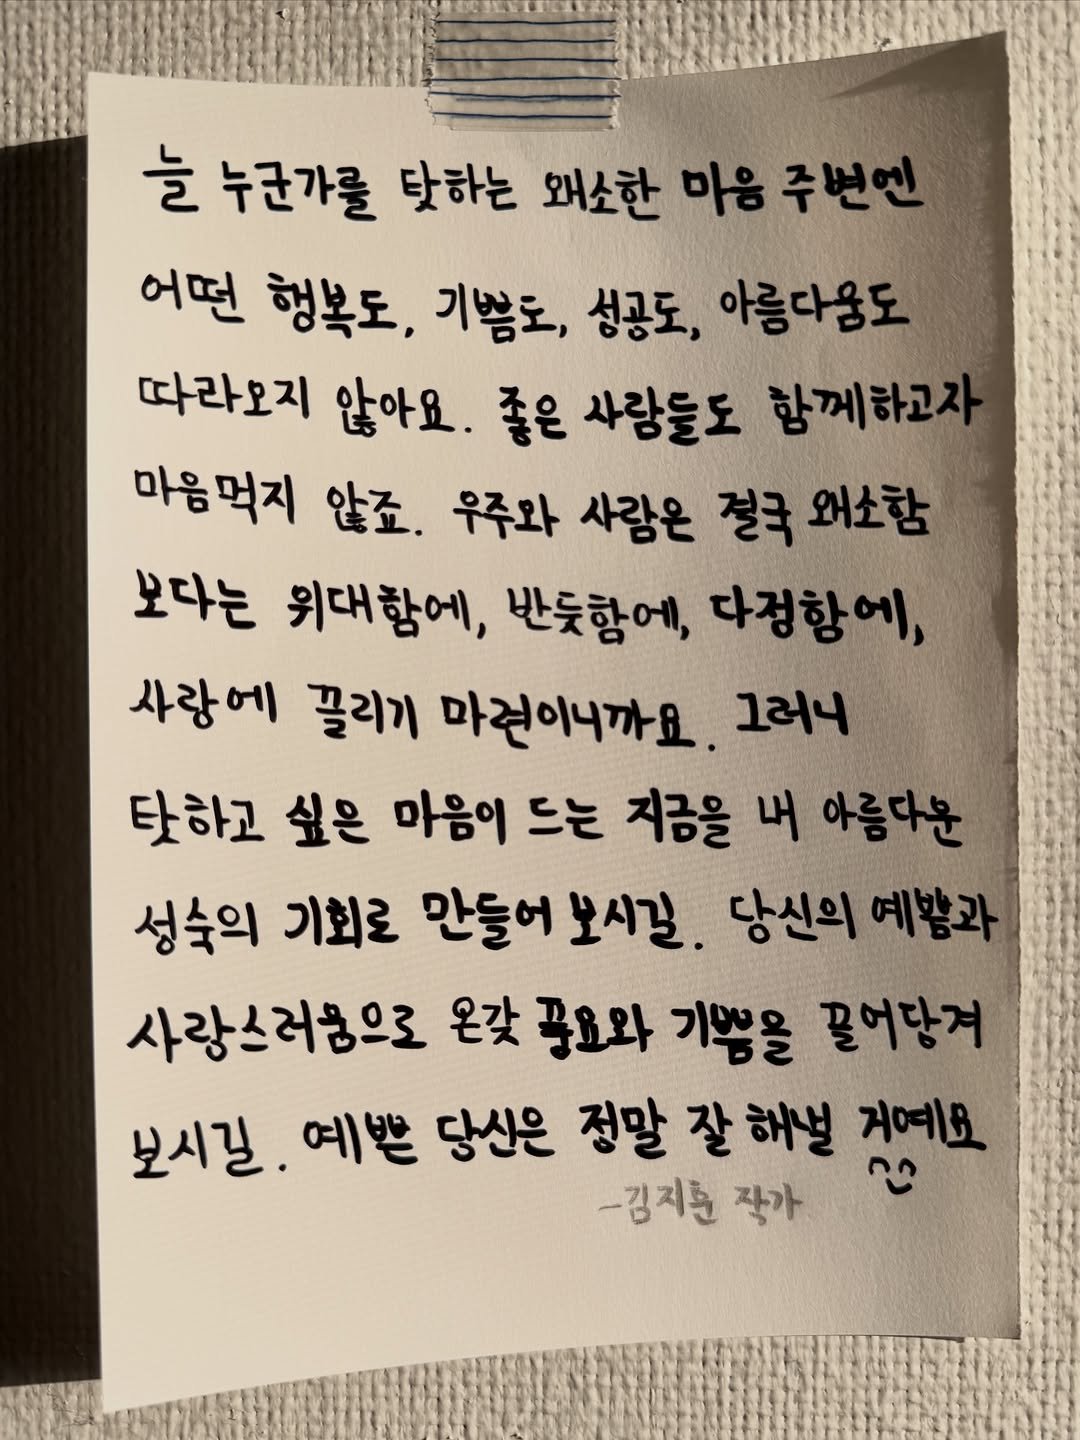 늘 누군가를 탓하는 왜소한 마음 주변엔
어떤 행복도, 기쁨도, 성공도, 아름다움도
따라오지 않아요. 좋은 사람들도 함께하고자
마음먹지 않죠. 우주와 사람은 결국 왜소함
보다는 위대함에, 반듯함에, 다정함에,
사랑에 끌리기 마련이니까요. 그러니
탓하고 싶은 마음이 드는 지금을 내 아름다운
성숙의 기회로 만들어 보시길. 당신의 예쁨과
사랑스러움으로 온갖 풍요와 기쁨을 끌어당겨
보시길. 예쁜 당신은 정말 잘 해낼 거예요
^^
-김지훈 작가